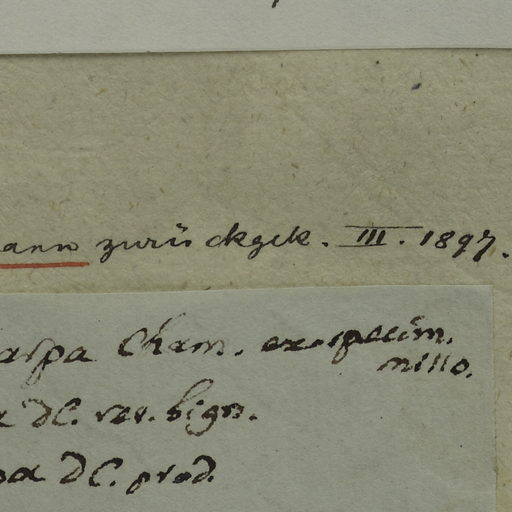 ann zurückgek. III. 1897.
arpa Cham. ex specim.
nillo.
DC. rev. bign.
pa DC. prod.